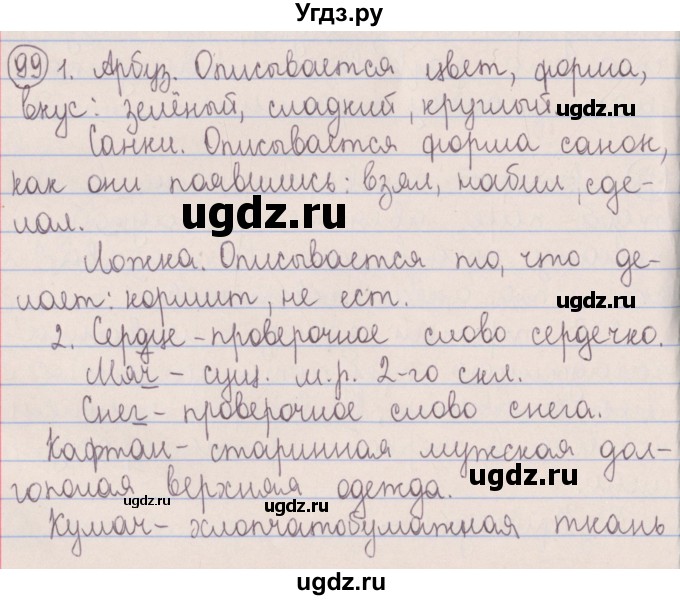 Угдз.ру
99 1. Арбуз. Описывается цвет, форма,
вкус: зелёный, сладкий, круглый.
ugdz.ru
Санки. Описывается форма санок,
как они появились: взял, набил, сде-
ugdz.ru
ugdz.ru
лал.
Ложка: Описывается то, что де-
лает: кормит, не ест.
ugdz.ru
2. Сердце - проверочное слово сердечко.
Мяч - сущ. м.р. 2-го скл.
Снег - проверочное слово снега.
Кафтан - старинная мужская дол-
гополая верхняя одежда.
ugdz.ru
ugdz.ru
Кумач - хлопчатобумажная ткань
ugdz.ru